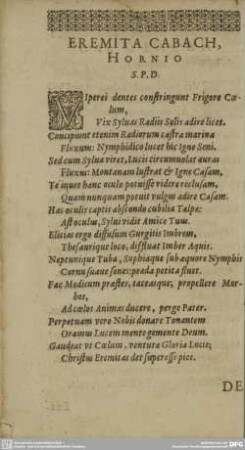 EREMITA CABACH,
HORNIO
S. P. D.
VIperei dentes constringunt Frigore Cœ-
lum,
Vix Syluas Radiis Solis adire licet.
Concipiunt etenim Radiorum castra marina
Fluxum: Nymphidico lucet hic Igne Seni.
Sed cum Sylua viret, Lucis circumuolat auras
Fluxum: Montanam lustrat & Igne Casam,
Te iuuet hanc oculo potuisse videre reclusam,
Quam nunquam potuit vulgus adire Casam.
Hac oculis captis abscondo cubilia Talpæ:
Ast oculus, Sylut vidit Amice Tuus.
Elicias ergo diffusum Gurgitis Imbrem,
Thesaurique loco, diffluat Imber Aquis.
Neptunique Tuba, Sophiaque sub æquore Nymphis
Cornu suaue sones: præda petita fluet.
Fac Medicum præstes, tactaque, propellere Mor-
bos,
Ad cœlos Animas ducere, perge Pater.
Perpetuam vero Nobis donare Tonantem
Oramus Lucem mente gemente Deum.
Gaudeat vt Cœlum, ventura Gloria Lucis,
Christus Eremitas det superesse pios.
DE